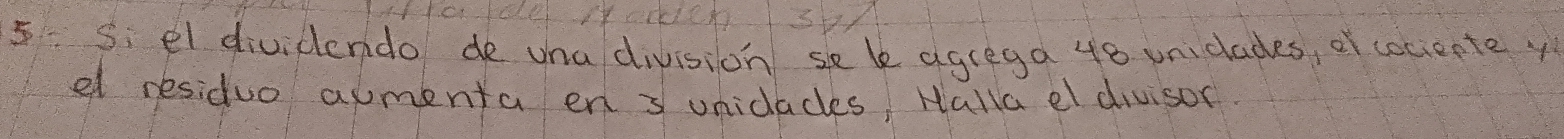 5. Si el dividendo de una división se le agrega 48 unidades, el cociente y
el residuo aumenta en 3 unidades, Halla el divisor.